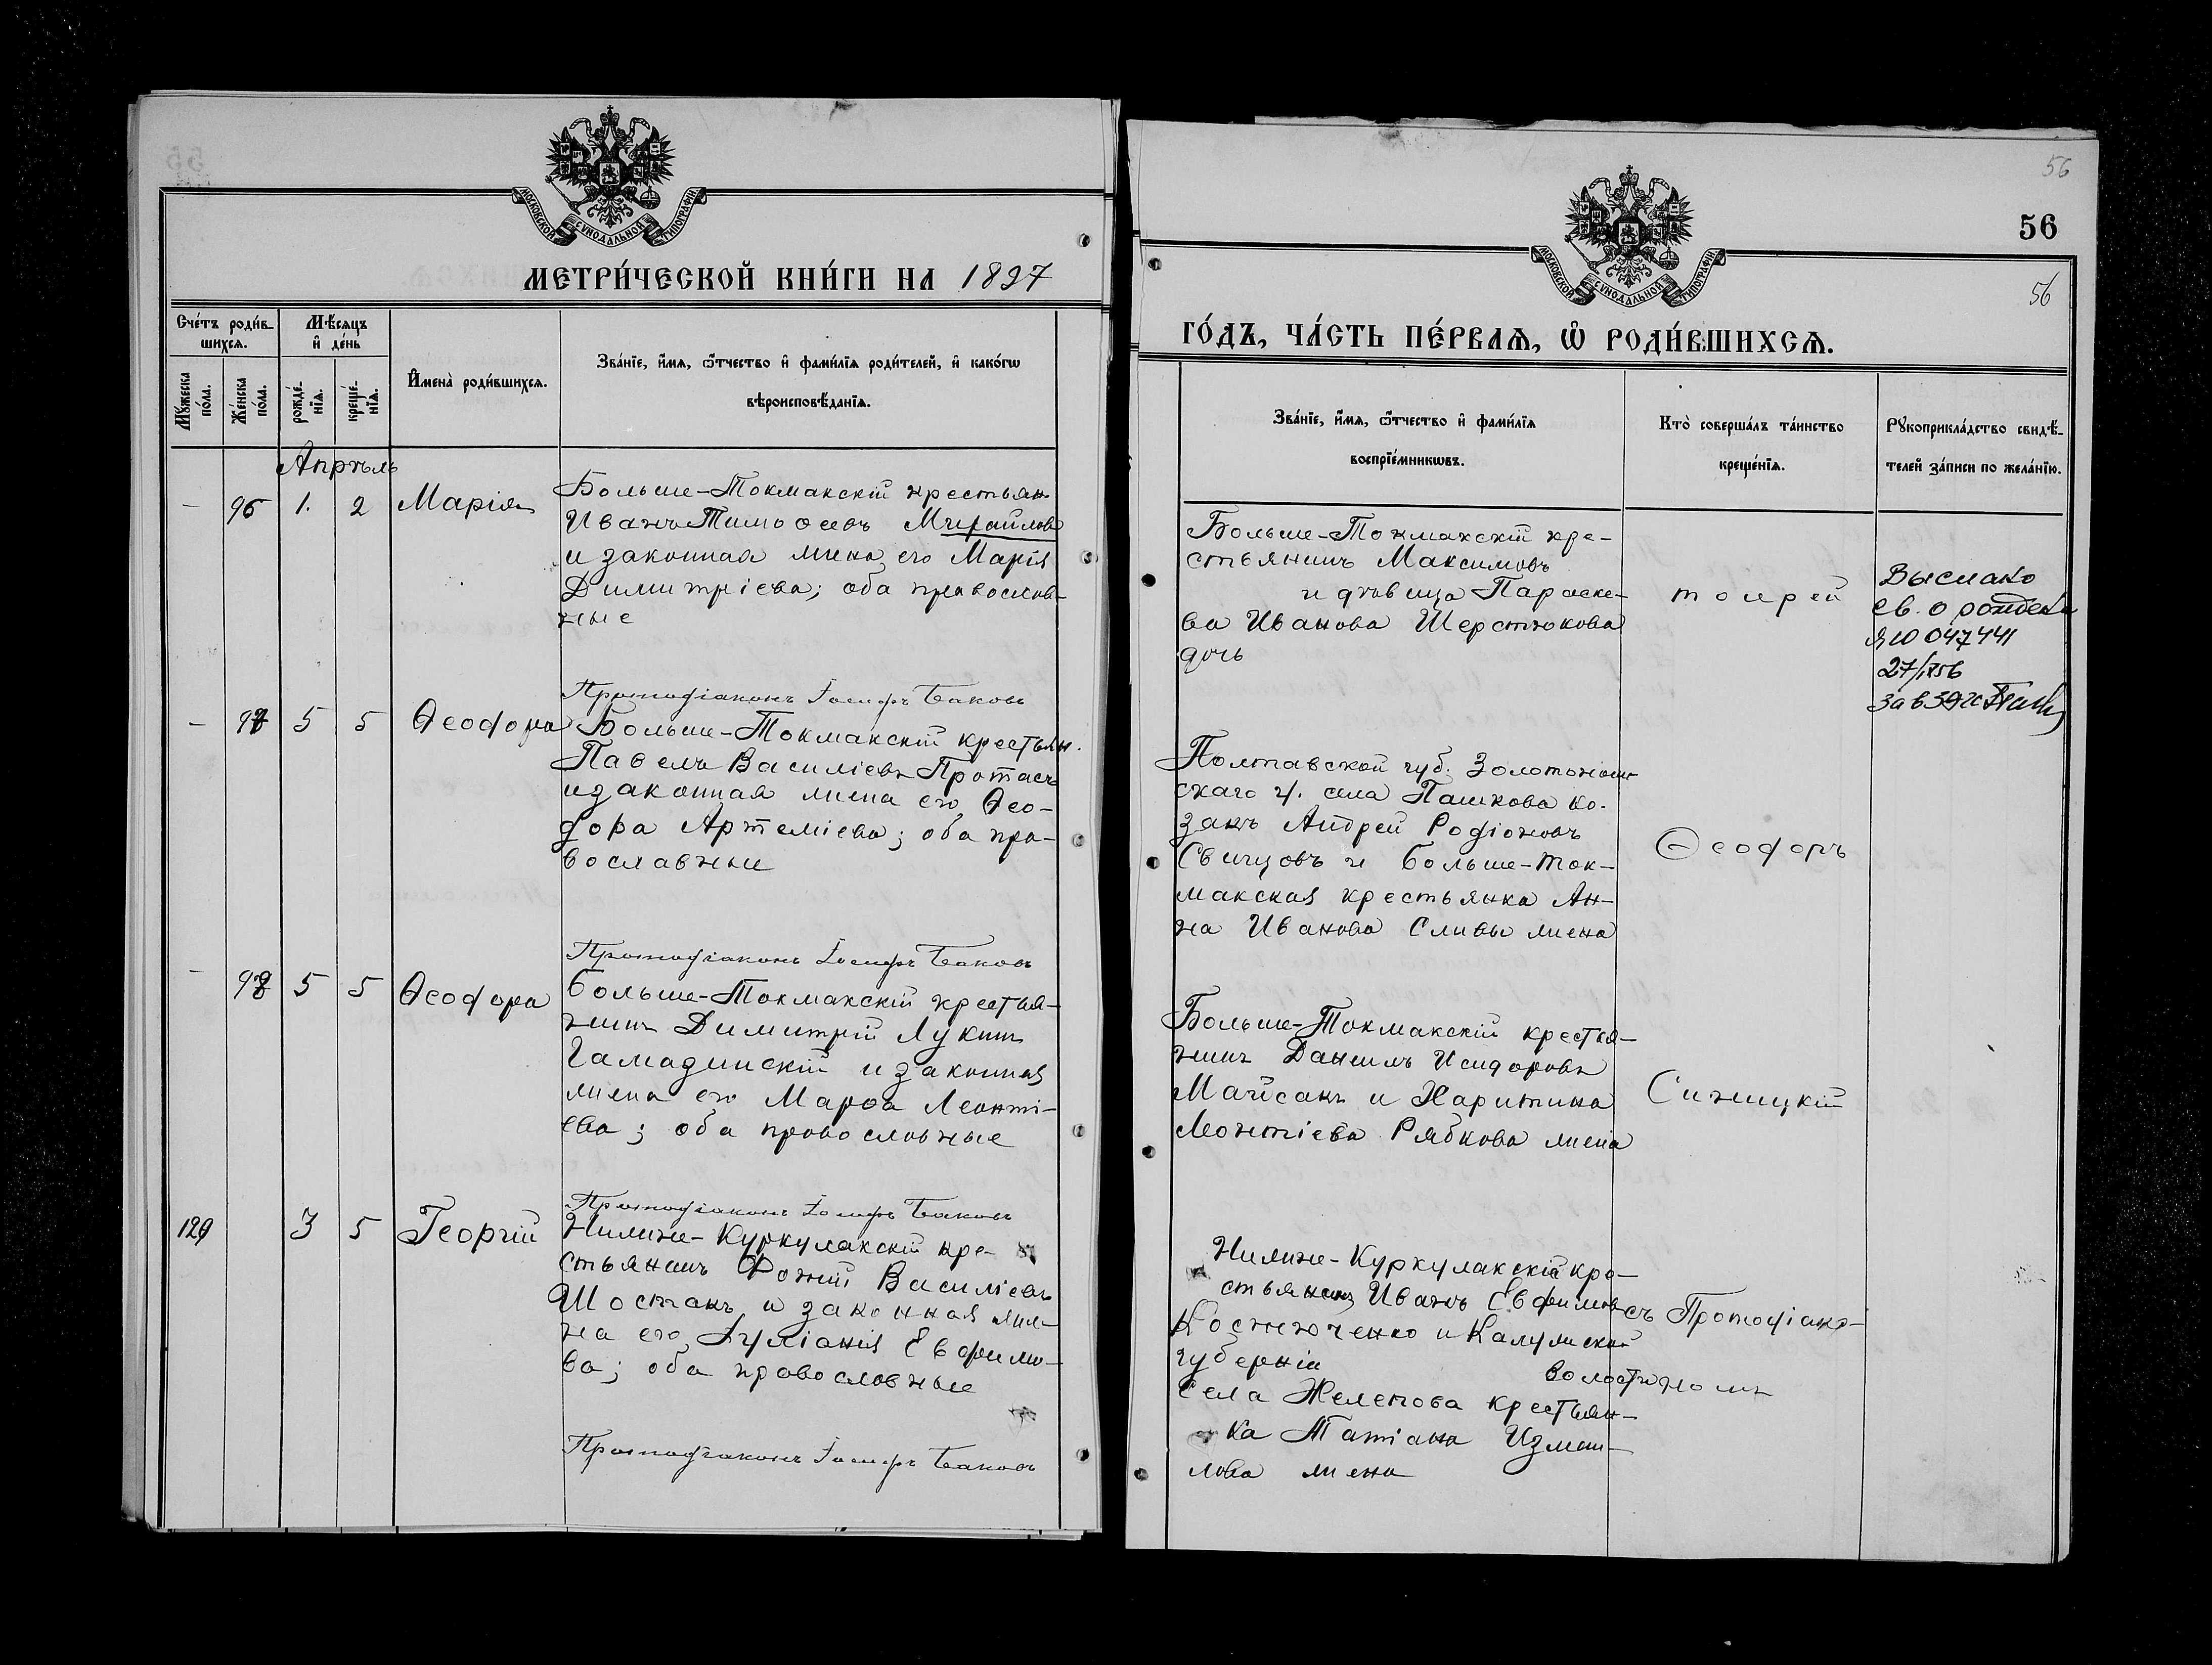 МОСКОВСКОЙ СУНОДАЛЬНОЙ ТИПОГРАФІИ
МЕТРИ́ЧЕСКОЙ КНИ́ГИ НА 1897
Сче́тъ роди́в-
шихся.
Мѣ́сяцъ
и҆ де́нь
Мꙋ́жеска
по́ла.
Же́нска
по́ла.
рожде́-
нїѧ.
креще́-
нїѧ.
И҆мена̀ роди́вшихсѧ.
Зва́нїе, и҆́мѧ, ѻ҆́тчество и҆ фами́лїѧ роди́телей, и҆ како́гѡ
вѣроисповѣ́данїѧ.
Апрѣль
— 96 1. 2 Марія
Больше-Токмакскій крестьян
Иванъ Тимоѳеевъ Михайлов
и законная жена его Марія
Димитріева; оба православ-
ные
Протодіаконъ Іосифъ Баковъ
— 97 5 5 Ѳеодора
Больше-Токмакскій крестьян.
Павелъ Василіевъ Протасъ
и законная жена его Ѳео-
дора Артеміева; оба пра-
вославные
Протодіаконъ Іосифъ Баковъ
— 98 5 5 Ѳеодора
Больше-Токмакскій крестья-
нинъ Димитрій Лукинъ
Гамадинскій и законная
жена его Марѳа Леонті-
ева; оба православные
Протодіаконъ Іосифъ Баковъ
120 3 5 Георгій
Нижне-Куркулакскій кре-
стьянинъ Фотій Василіевъ
Шостакъ и законная же-
на его Іуліанія Евфимо-
ва; оба православные
Протодіаконъ Іосифъ Баковъ
56
56
МОСКОВСКОЙ СУНОДАЛЬНОЙ ТИПОГРАФІИ
56
ГО́ДЪ, ЧА́СТЬ ПЕ́РВАѦ, Ѽ РОДИ́ВШИХСѦ.
Зва́нїе, и҆́мѧ, ѻ҆́тчество и҆ фами́лїѧ
воспрїе́мникѡвъ.
Кто̀ соверша́лъ та́инство
креще́нїѧ.
Рꙋкоприкла́дство свидѣ́-
телей за́писи по жела́нїю.
Больше-Токмакскій кре-
стьянинъ Максимовъ
и дѣвица Параске-
ва Иванова Шерстюкова
дочь
іерей
Выслано
св. о рожден
ЯЮ 047441
Полтавской губ. Золотонош-
скаго у. села Пашкова ко-
закъ Андрей Родіоновъ
Свищовъ и Больше-Ток-
макская крестьянка Ан-
на Иванова Сливы жена
Ѳеодоръ
Больше-Токмакскій крестья-
нинъ Даниилъ Исидоровъ
Майсакъ и Харитина
Леонтіева Рябкова жена
Синицкій
Нижне-Куркулакскій кре-
стьянинъ Иванъ Евфимов
Костюченко и Калужской
губерніи волости
села Желетова крестьян-
ка Татіана Измаи-
лова жена
съ Протодіако-
номъ